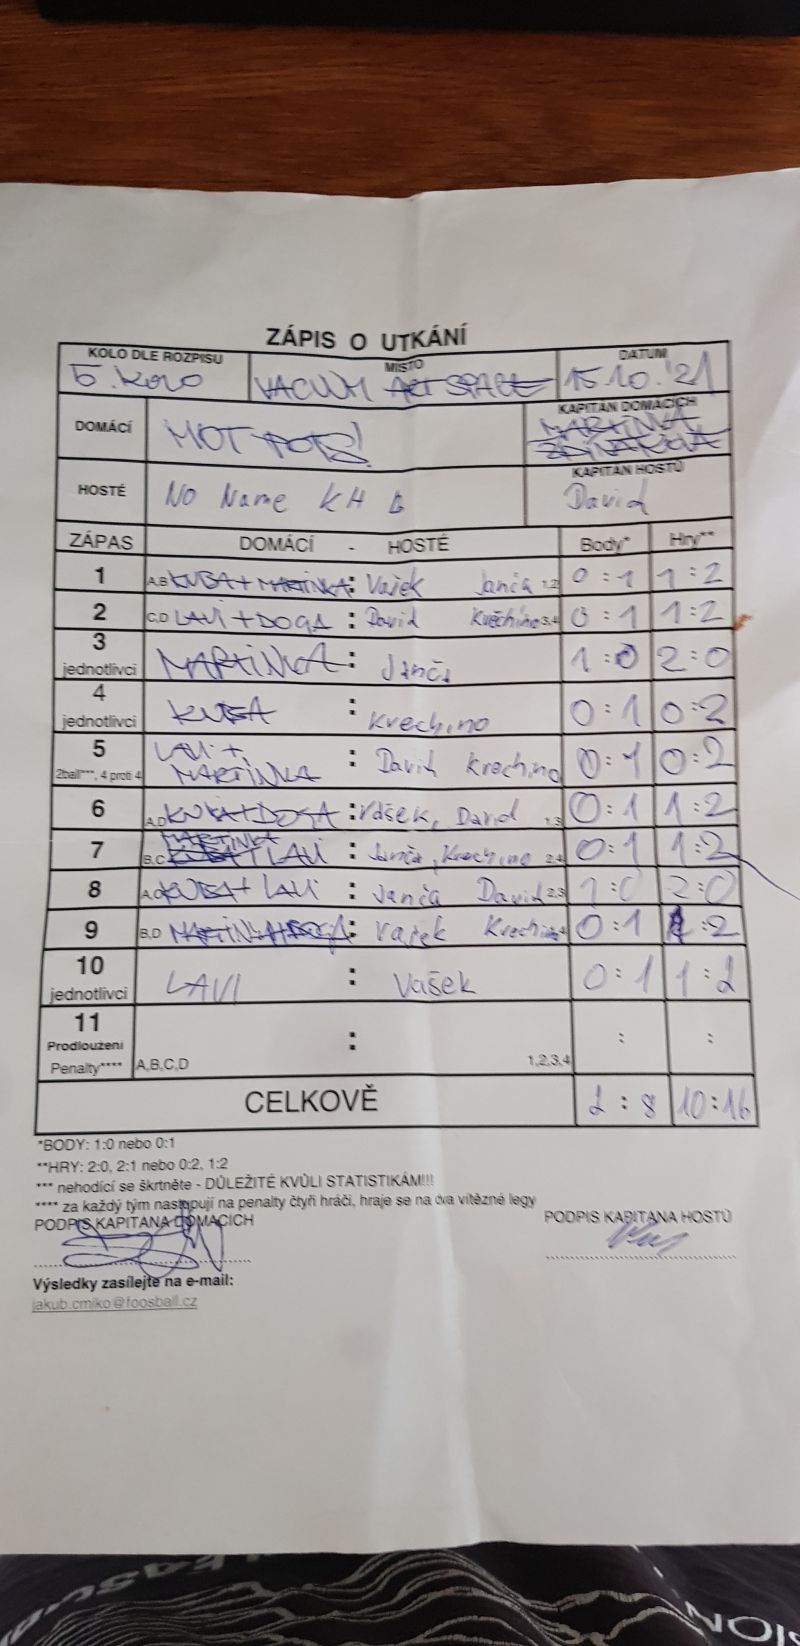 ZÁPIS O UTKÁNÍ
KOLO DLE ROZPISU MÍSTO DATUM
5. KOLO VACUUM ART SPACE 15.10.'21
DOMÁCÍ HOT POTS! KAPITÁN DOMÁCÍCH
MARTINKA
HOSTÉ NO Name KH B KAPITÁN HOSTŮ
David
ZÁPAS DOMÁCÍ - HOSTÉ Body* Hry**
1 A,B KUBA + MARTINKA : Vašek Janča 1,2 0:1 1:2
2 C,D LAVI + DOGA : David Kvěchino 3,4 0:1 1:2
3 jednotlivci MARTINKA : Janča 1:0 2:0
4 jednotlivci KUBA : Krechino 0:1 0:2
5 LAVI +
2ball***, 4 proti 4 MARTINKA : David Krechino 0:1 0:2
6 A,D KUBA + DOGA : Vašek, David 1,3 0:1 1:2
MARTINKA
7 B,C KUBA + LAVI : Janča, Krechino 2,4 0:1 1:2
8 A,C KUBA + LAVI : Janča David 2,3 1:0 2:0
9 B,D MARTINKA + DOGA : Vašek Krechino 0:1 1:2
10 jednotlivci LAVI : Vašek 0:1 1:2
11 : : :
Prodloužení
Penalty**** A,B,C,D 1,2,3,4
CELKOVĚ 2:8 10:16
*BODY: 1:0 nebo 0:1
**HRY: 2:0, 2:1 nebo 0:2, 1:2
*** nehodící se škrtněte - DŮLEŽITÉ KVŮLI STATISTIKÁM!!!
**** za každý tým nastupují na penalty čtyři hráči, hraje se na dva vítězné legy
PODPIS KAPITÁNA DOMÁCÍCH PODPIS KAPITÁNA HOSTŮ
Výsledky zasílejte na e-mail:
jakub.cmiko@foosball.cz